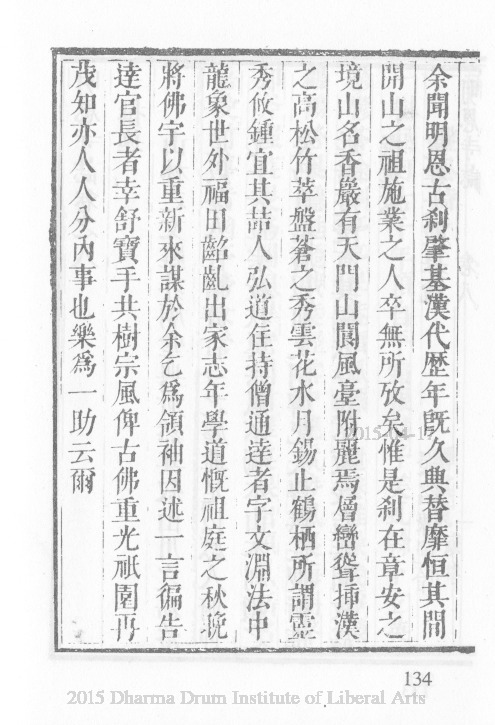 余聞明恩古刹肇基漢代歷年旣久典替靡恒其間
開山之祖施業之人卒無所攷矣惟是刹在章安之
境山名香嚴有天門山閬風臺附麗焉層巒聳揷漢
之高松竹萃盤蒼之秀雲花水月錫止鶴栖所謂靈
秀攸鍾宜其喆人弘道住持僧通達者字文淵法中
龍象世外福田齠齔出家志年學道慨祖庭之秋晚
將佛宇以重新來謀於余乞爲領袖因述一言徧告
達官長者幸舒寶手共樹宗風俾古佛重光祇園再
茂知亦人人分內事也樂爲一助云爾
2015-04-17
134
2015 Dharma Drum Institute of Liberal Arts